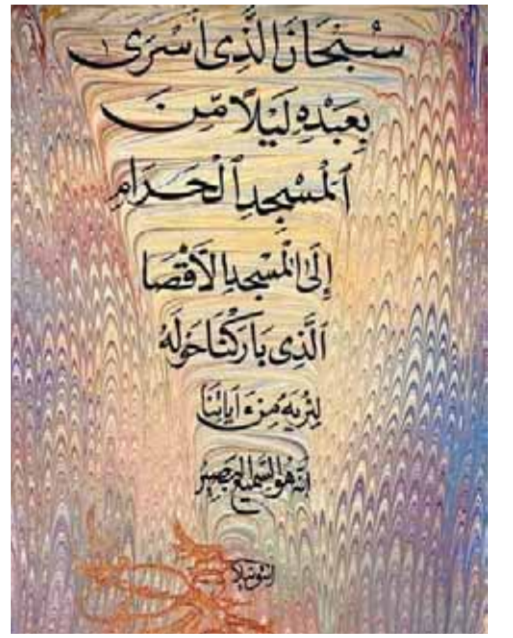 سُبْحَانَ الَّذِى اَسْرَى
بِعَبْدِهِ لَيْلًا مِّنَ
ٱلْمَسْجِدِ ٱلْحَرَامِ
إِلَى ٱلْمَسْجِدِ الْأَقْصَا
الَّذِى بَارَكْنَا حَوْلَهُ
لِنُرِيَهُ مِنْ ءَايَاتِنَا
اِنَّهُ هُوَ السَّمِيعُ الْبَصِيرُ